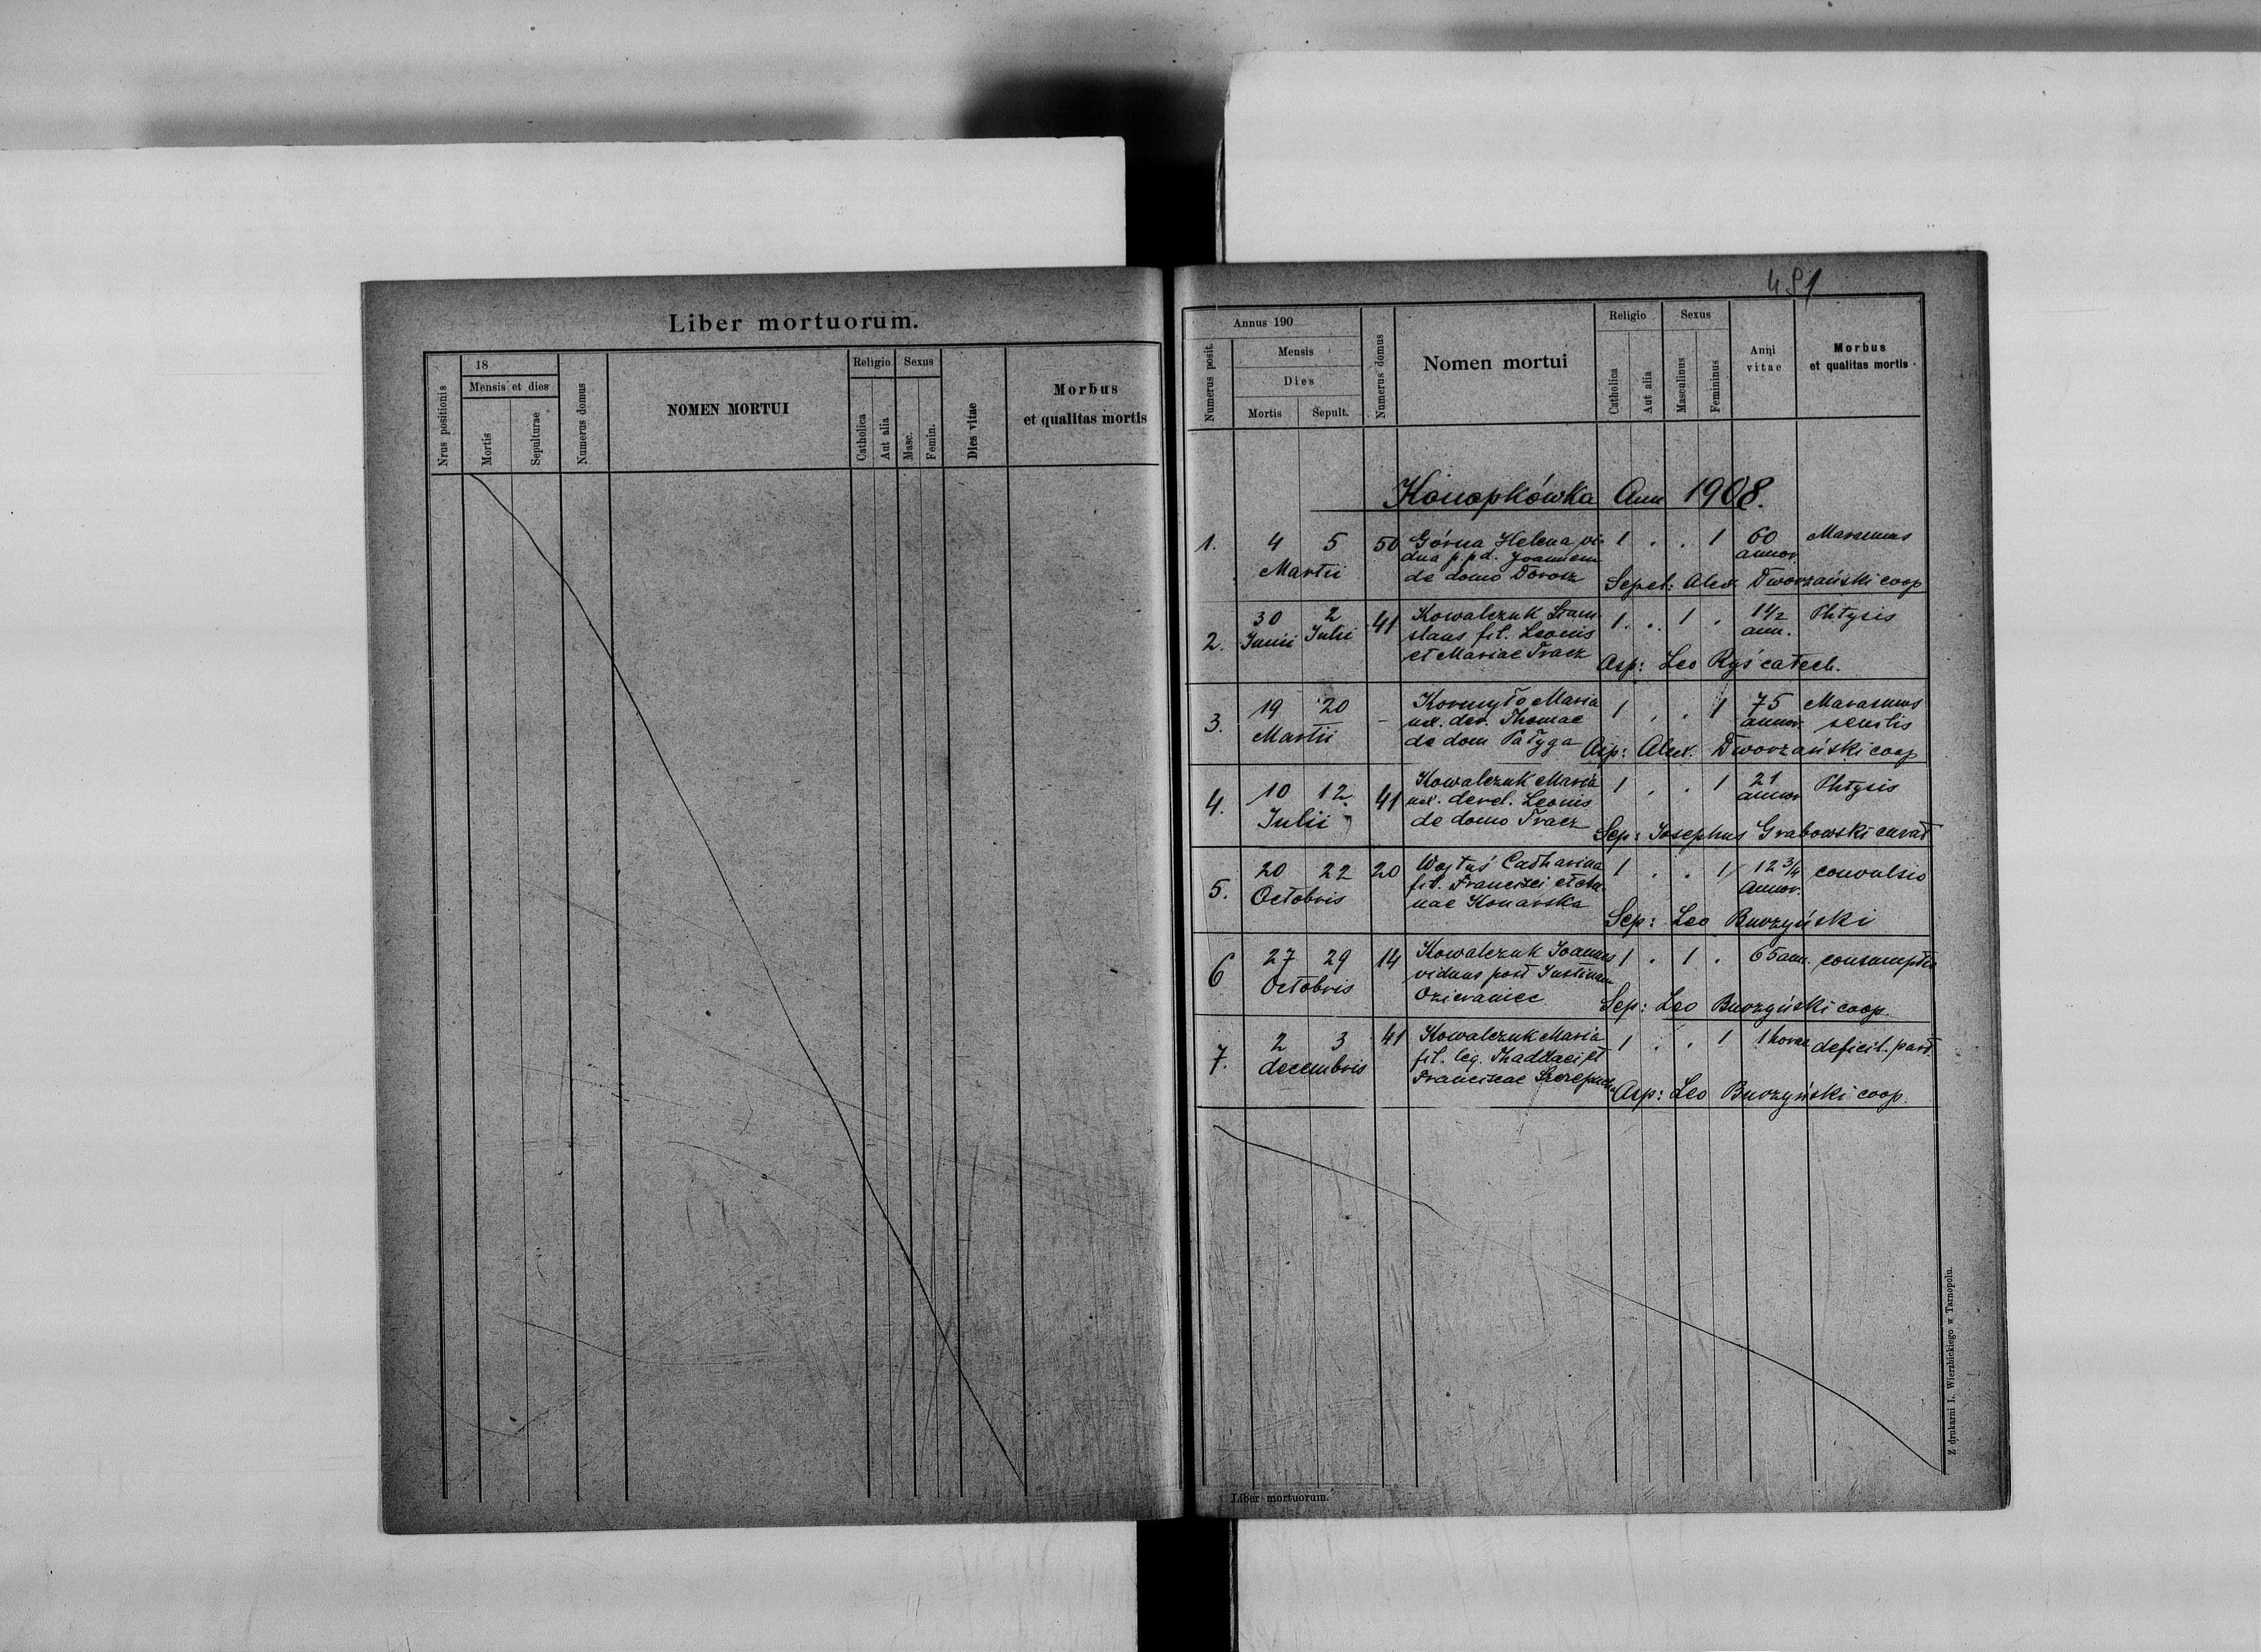 Liber mortuorum.
Nrus positionis
18
Mensis et dies
Mortis
Sepulturae
Numerus domus
NOMEN MORTUI
Religio
Catholica
Aut alia
Sexus
Masc.
Femin.
Dies vitae
Morbus
et qualitas mortis
491
Numerus posit.
Annus 190
Mensis
Dies
Mortis
Sepult.
Numerus domus
Nomen mortui
Religio
Catholica
Aut alia
Sexus
Masculinus
Femininus
Anni
vitae
Morbus
et qualitas mortis
Konopkówka Ann 1908.
1. 4 5 50 Górna Helena vi- 1 . . 1 60 Marasmus
dua p. pd. Joannem annor.
Martii de domo Dorosz Sepel: Alex. Dworzański coop
30 2 41 Kowalczuk Stani 1 . . 1 . 1 1/2 Phtysis
2. Junii Julii slaus fil. Leonis ann.
et Mariae Tracz Asp: Leo Ryś catech.
3. 19 20 - Kormyło Maria 1 . . 1 75 Marasmus
ux. der. Thomae annor. senilis
Martii de dom Patyga Asp: Alex. Dworzański coop
4. 10 12 41 Kowalczuk Maria 1 . . 1 21 Phtysis
ux. derel. Leonis annor
Julii de domo Tracz Sep: Josephus Grabowski curat
20 22 20 Wojtuś Catharina 1 . . 1 12 3/4 convulsio
5. Octobris fil. Francisci et An annor.
nae Konarska
Sep: Leo Burzyński
6 27 29 14 Kowalczuk Joannes 1 . 1 . 65 ann. consumptio
Octobris viduus post Justinam
Ozieraniec Sep: Leo Burzyński coop.
7. 2 3 41 Kowalczuk Maria 1 . . 1 1 horae deficit. part
decembris fil. leg. Thaddaei et
Franciscae Asp: Leo Burzyński coop.
Liber mortuorum.
Z drukarni L. Wierzbickiego w Tarnopolu.